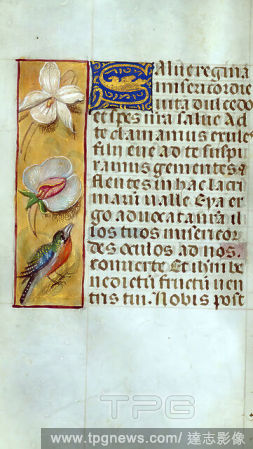 Salue regina
misericordie
uita dulcedo
et spes nr̄a salue Ad
te clamamus exules
filii eue ad te suspi
ramus gementes &
flentes in hac lacri
marū ualle Eya er
go aduocata nr̄a il
los tuos misericor
des oculos ad nos.
conuerte Et ihm̄ be
nedictū fructū uen
tris tui. Nobis post
TPG
www.tpgnews.com/達志影像